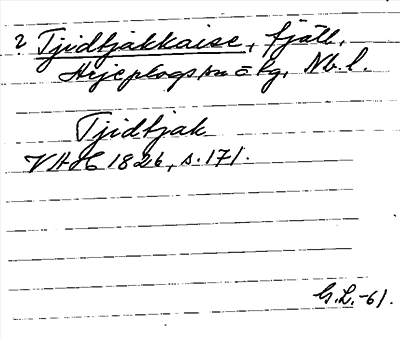 ? Tjidtjakkaise, fjäll,
Arjeplogs sn o kg, Nb. l.
Tjidtjak
VAH 1826, s. 171.
G.L. -61.